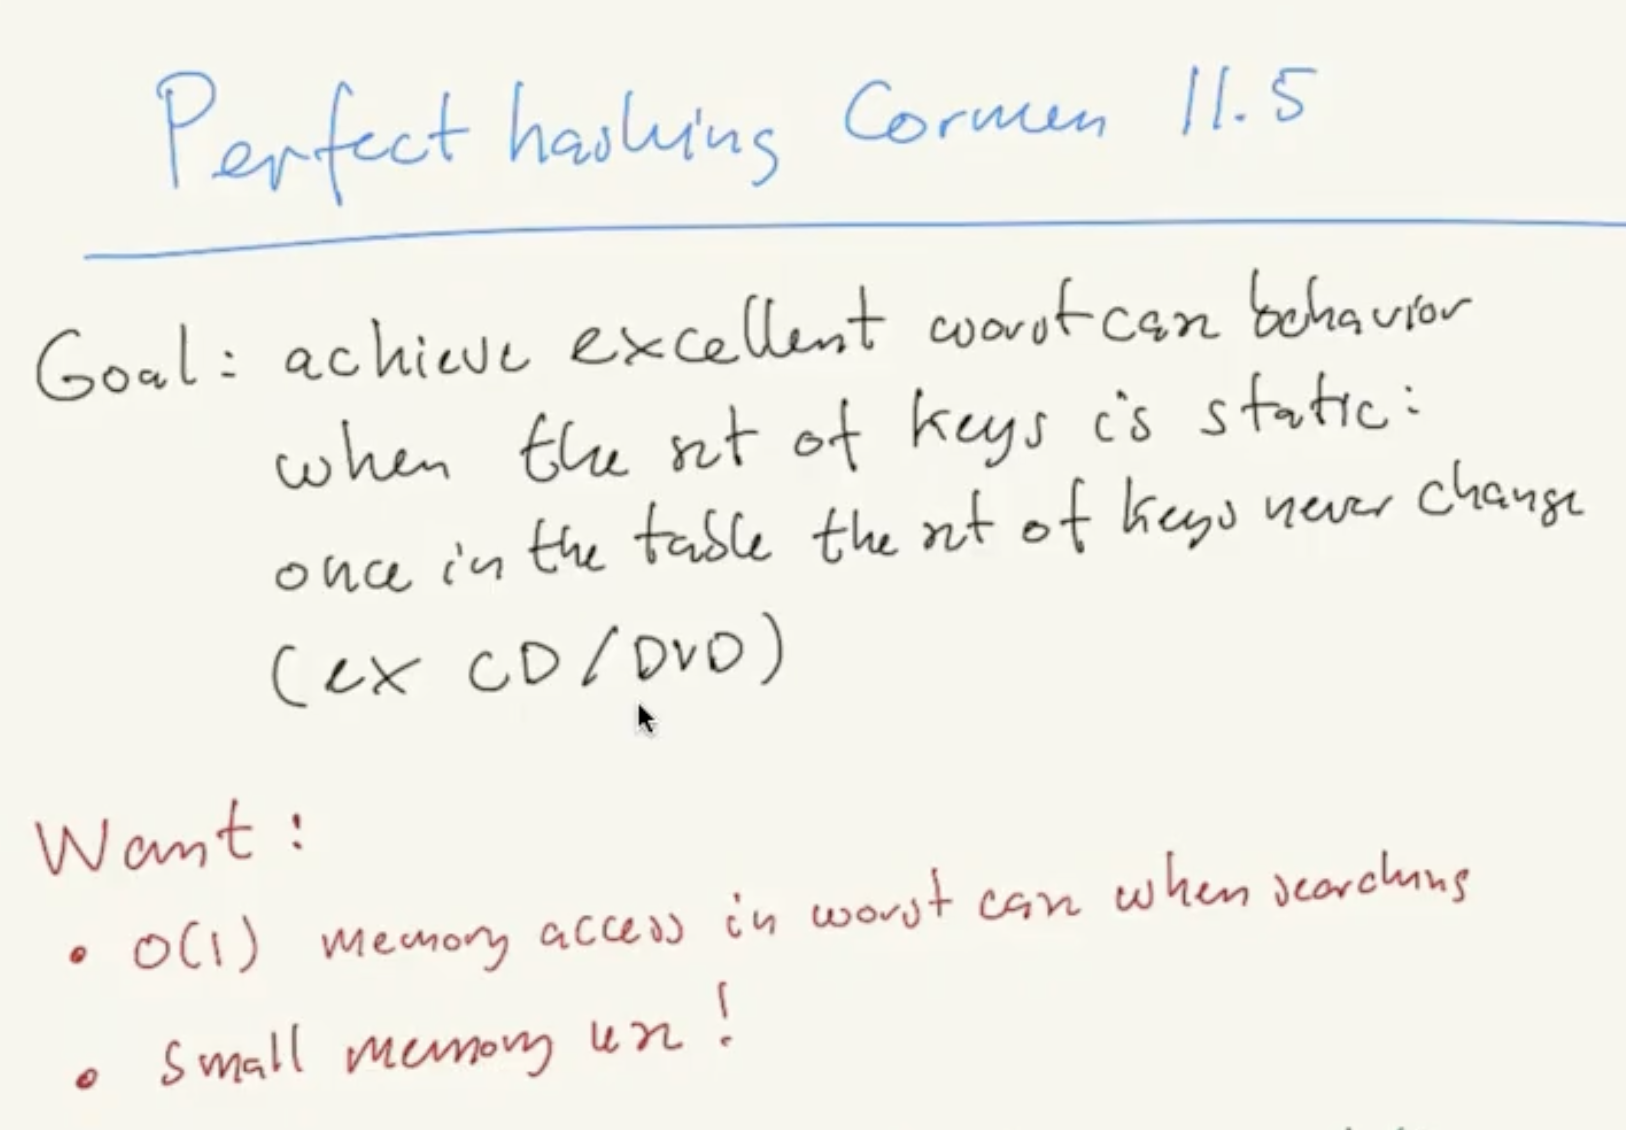 Perfect hashing Cormen 11.5
Goal: achieve excellent worst case behavior
when the set of keys is static:
once in the table the set of keys never change
(ex CD/DVD)
Want:
• O(1) memory access in worst case when searching
• Small memory use!